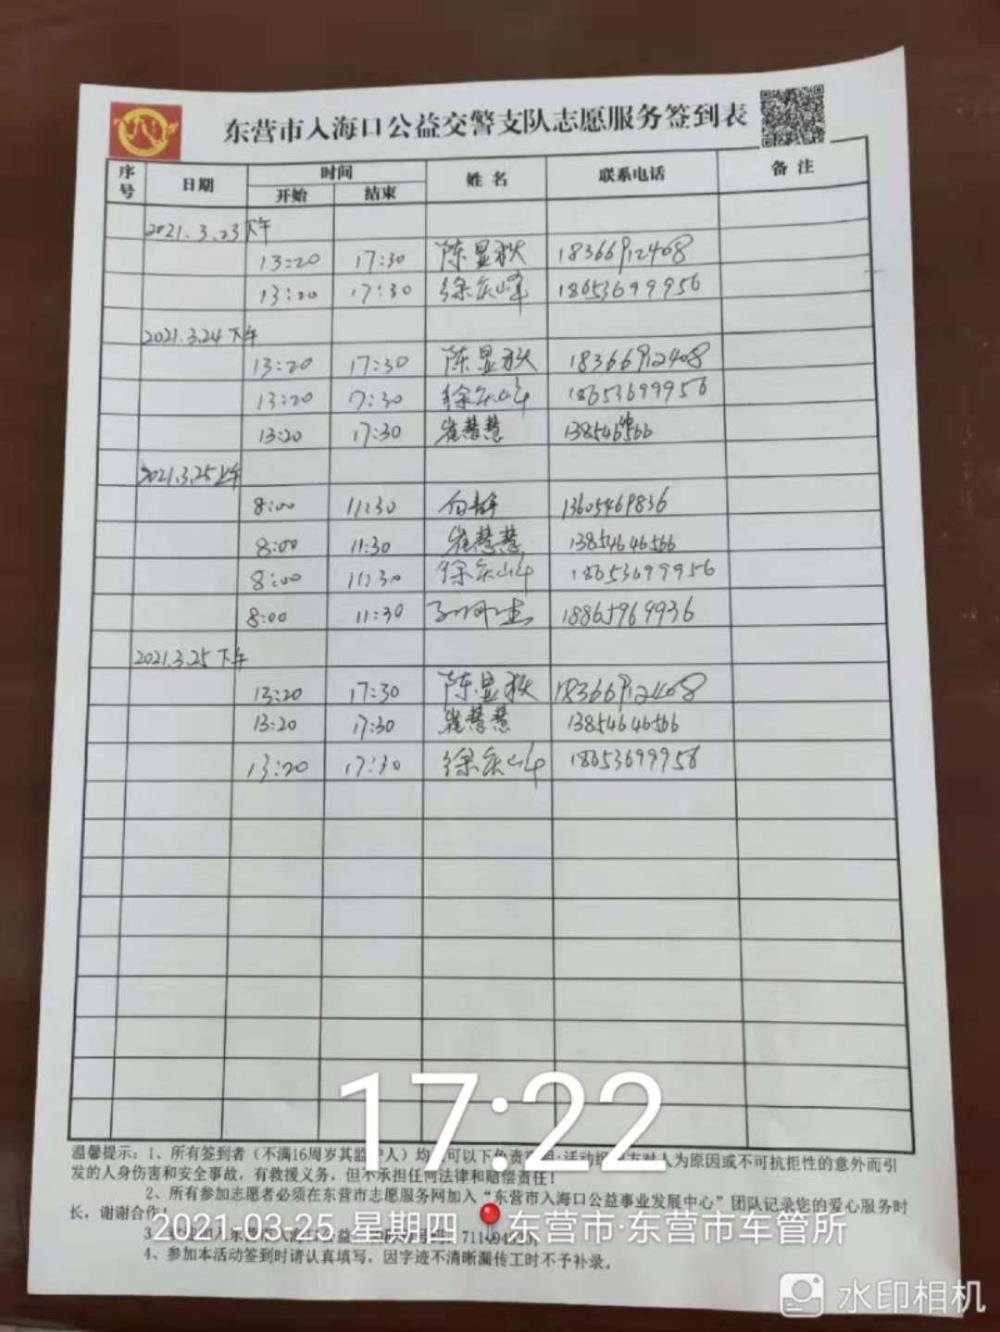 东营市入海口公益交警支队志愿服务签到表
序号 日期 时间 姓名 联系电话 备注
开始 结束
2021.3.23下午
13:20 17:30 陈显秋 18366912408
13:20 17:30 徐庆峰 18653699956
2021.3.24下午
13:20 17:30 陈显秋 18366912408
13:20 17:30 徐庆峰 18653699956
13:20 17:30 崔慧慧
2021.3.25上午
8:00 11:30 白静 13605469836
8:00 11:30 崔慧慧 13854646566
8:00 11:30 徐庆峰 18653699956
8:00 11:30 18865969936
2021.3.25下午
13:20 17:30 陈显秋 18366912408
13:20 17:30 崔慧慧 13854646566
13:20 17:30 徐庆峰 18653699956
17:22
温馨提示:1、所有签到者(不满16周岁其监护人)均 可以下免责 活动组 方对人为原因或不可抗拒性的意外而引
发的人身伤害和安全事故,有救援义务,但不承担任何法律和赔偿责任!
2、所有参加志愿者必须在东营市志愿服务网加入“东营市入海口公益事业发展中心”团队记录您的爱心服务时
长,谢谢合作!
2021-03-25 星期四 东营市·东营市车管所
3、 加入东营 入海口公益 711
4、参加本活动签到时请认真填写,因字迹不清晰漏传工时不予补录。
水印相机